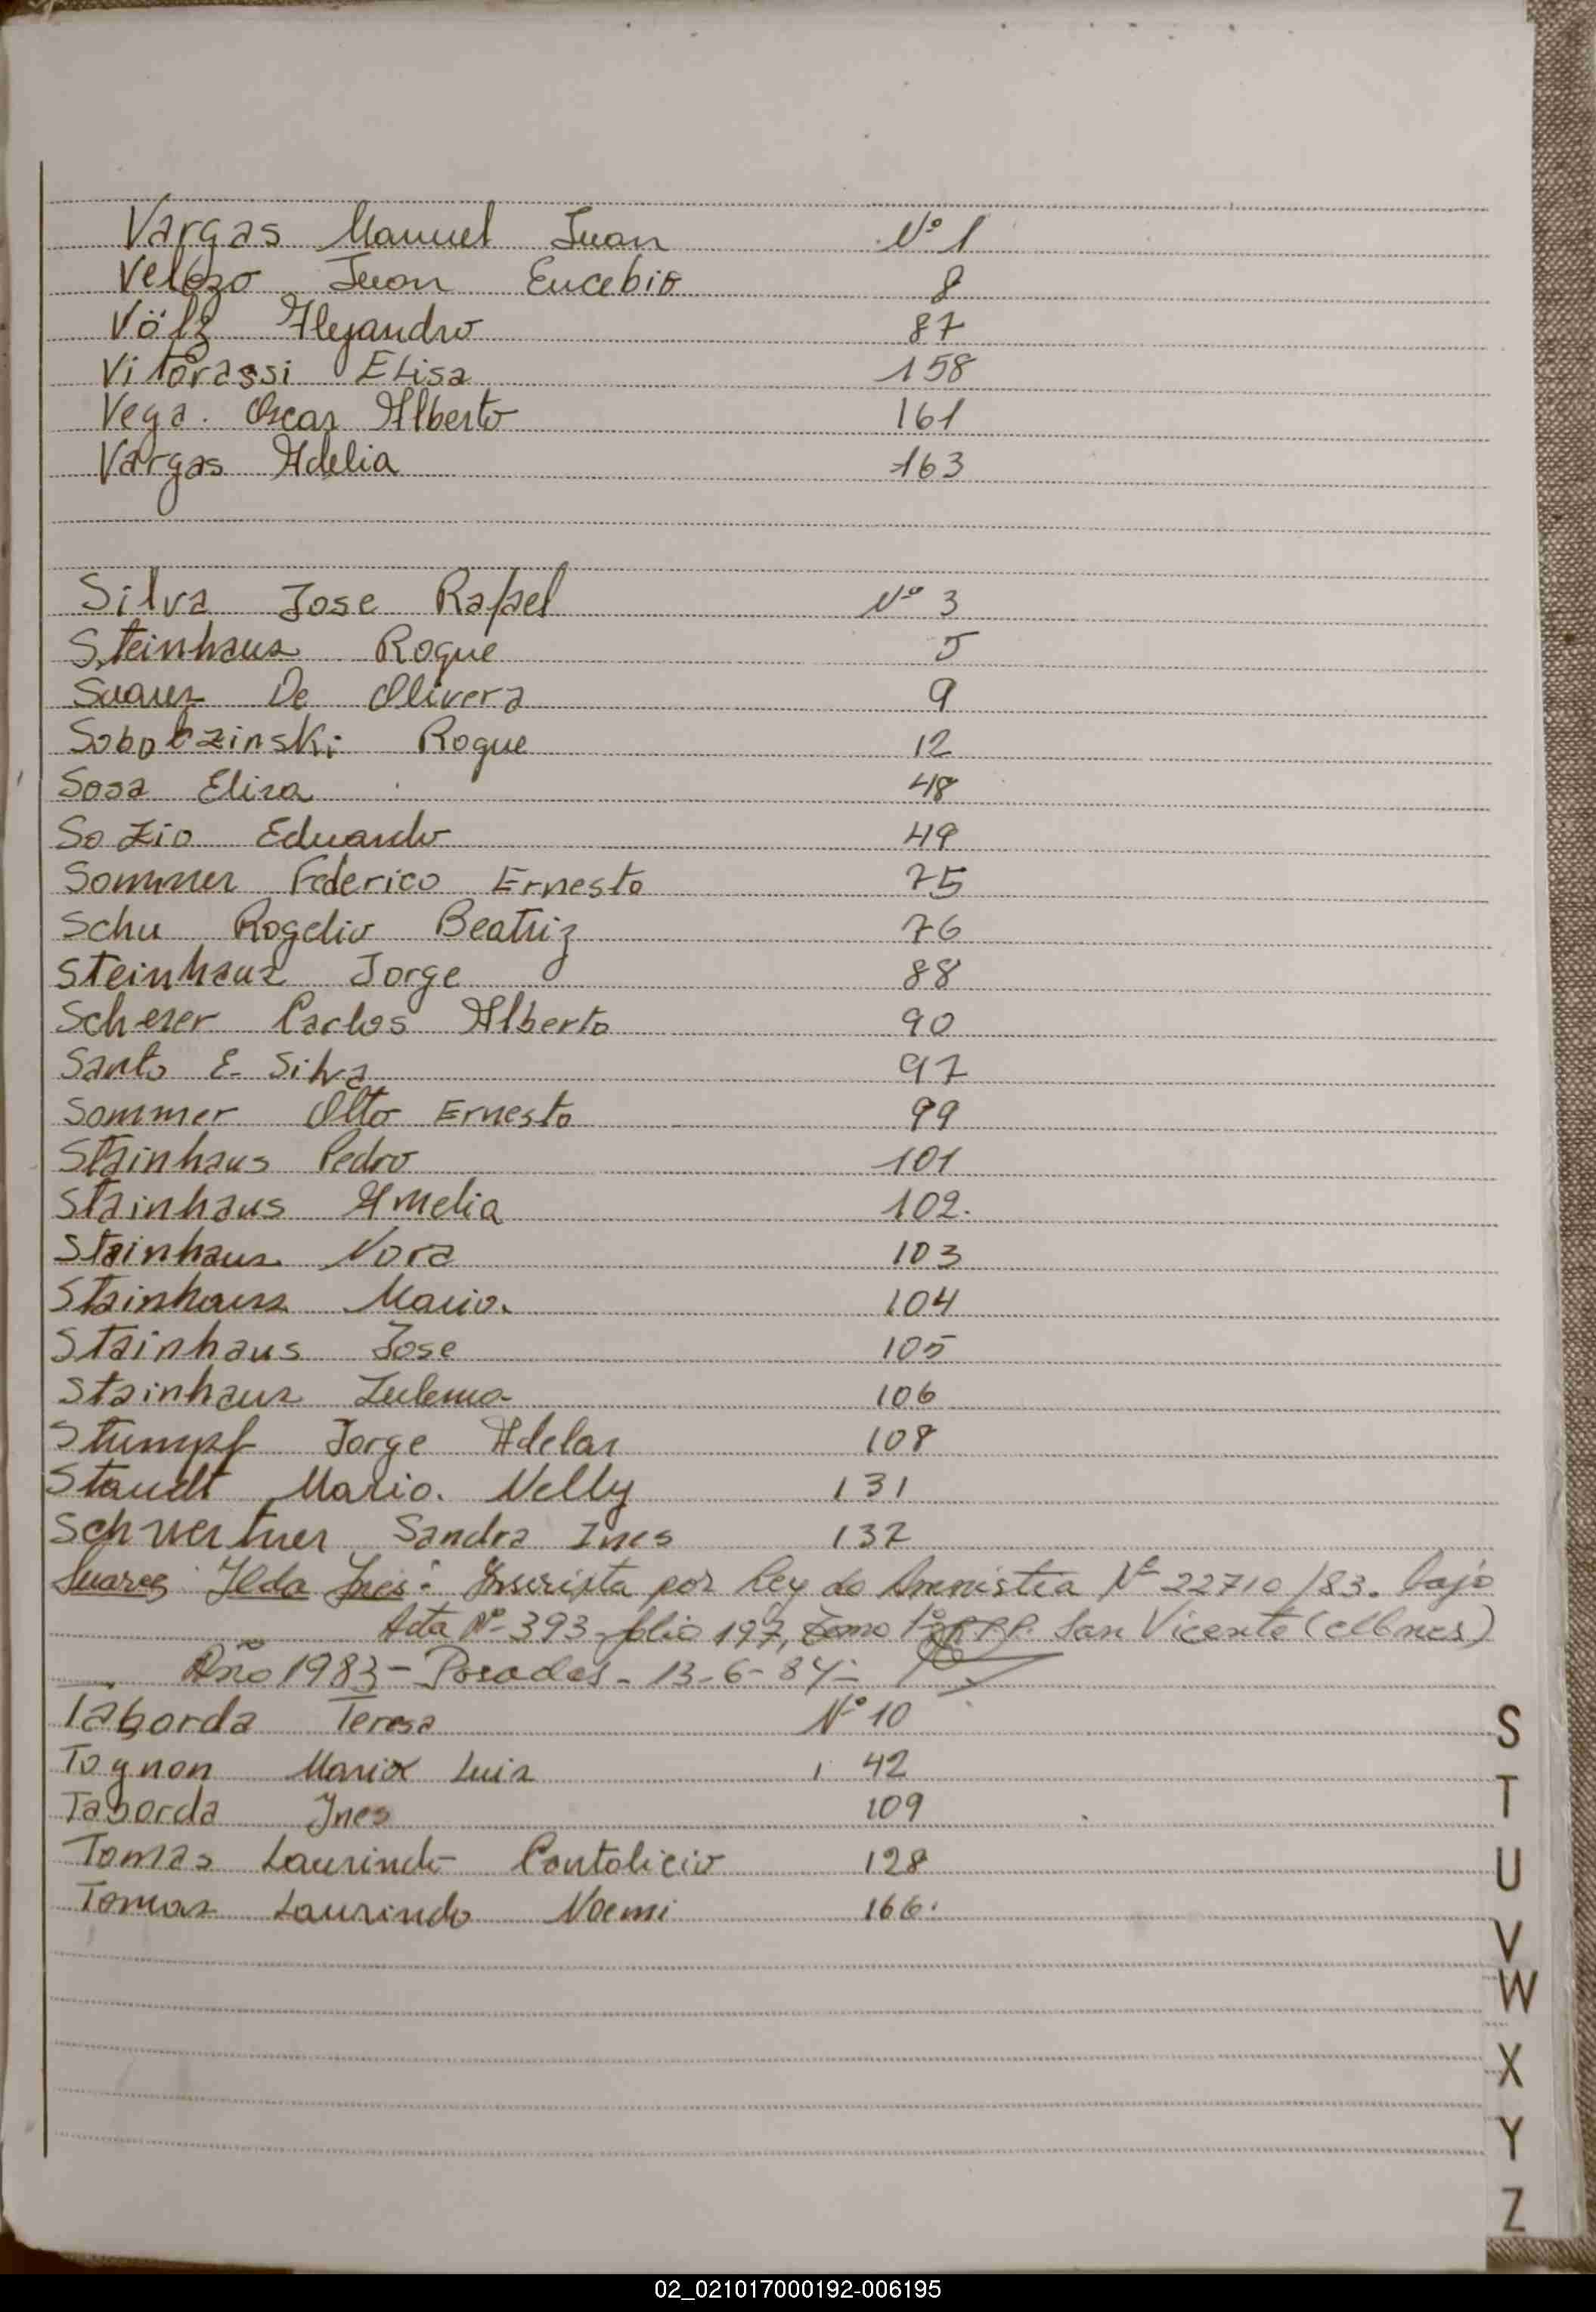 Vargas Manuel Juan Nº 1
Velozo Juan Eucebio 8
Völz Alejandro 87
Vitorassi Elisa 158
Vega. Oscar Alberto 161
Vargas Adelia 163
Silva Jose Rafael Nº 3
Steinhaus Roque 5
Suarez De Olivera 9
Sobolzinski Roque 12
Sosa Elisa 48
Sozio Eduardo 49
Sommer Federico Ernesto 75
Schu Rogelio Beatriz 76
Steinhaus Jorge 88
Scherer Carlos Alberto 90
Santo E. Silva 97
Sommer Otto Ernesto 99
Stainhaus Pedro 101
Stainhaus Amelia 102.
Stainhaus Nora 103
Stainhaus Mario. 104
Stainhaus Jose 105
Stainhaus Zulema 106
Stumpf Jorge Adelar 108
Staudt Mario. Nelly 131
Schwertner Sandra Ines 132
Suarez Ilda Ines: Inscripta por Ley de Amnistia Nº 22710/83. bajo
Acta Nº 393 folio 197, tomo 1º San Vicente (Mnes)
Año 1983 - Posadas - 13-6-84-
Taborda Teresa Nº 10
Tognon Mario Luis 42
Taborda Ines 109
Tomas Laurindo 128
Tomas Laurindo Noemi 166.
S
T
U
V
W
X
Y
Z
02_021017000192-006195